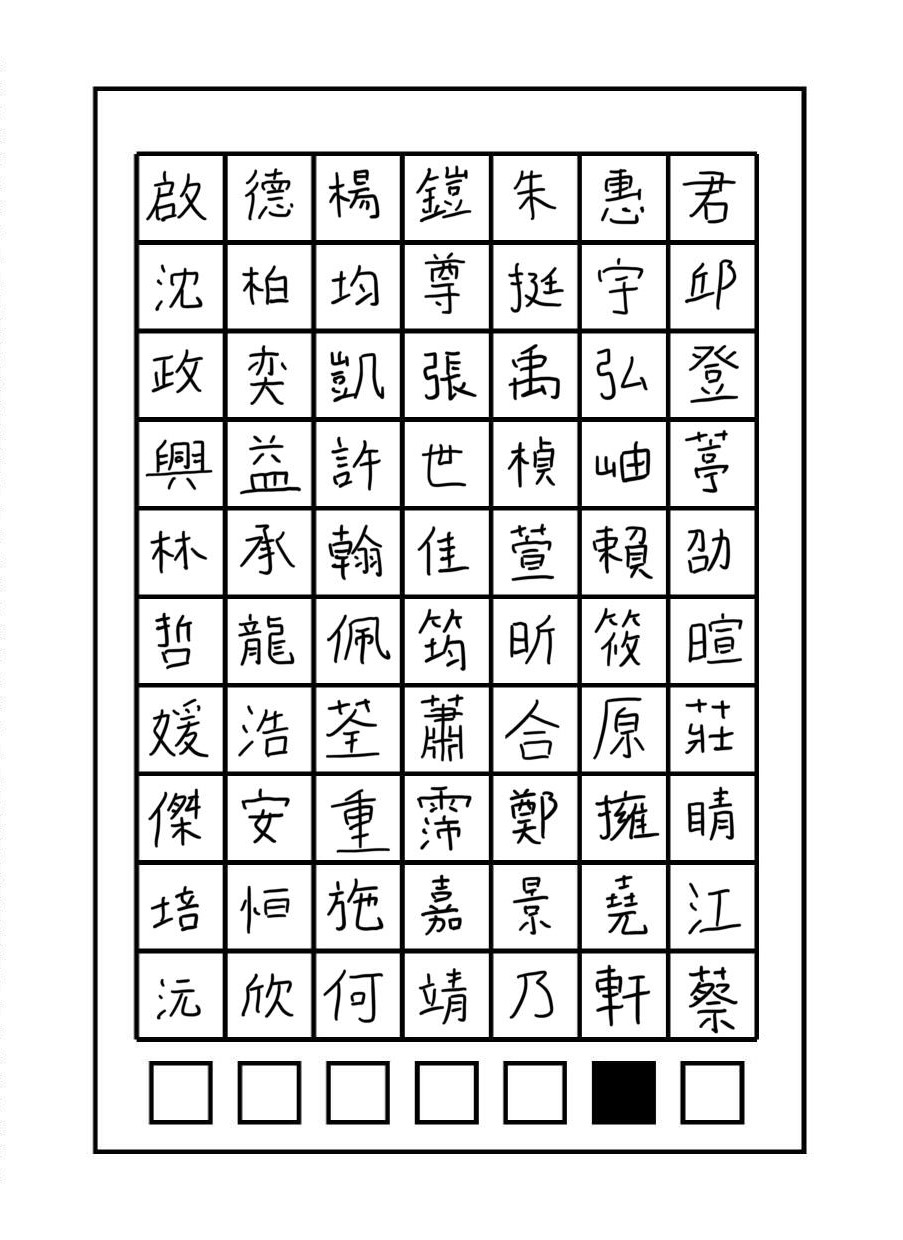 啟德楊鎧朱惠君
沈柏均尊挺宇邱
政奕凱張禹弘登
興益許世楨岫葶
林承翰佳萱賴劭
哲龍佩筠昕筱暄
媛浩荃蕭合原莊
傑安重霈鄭擁晴
培恒施嘉景堯江
沅欣何靖乃軒蔡